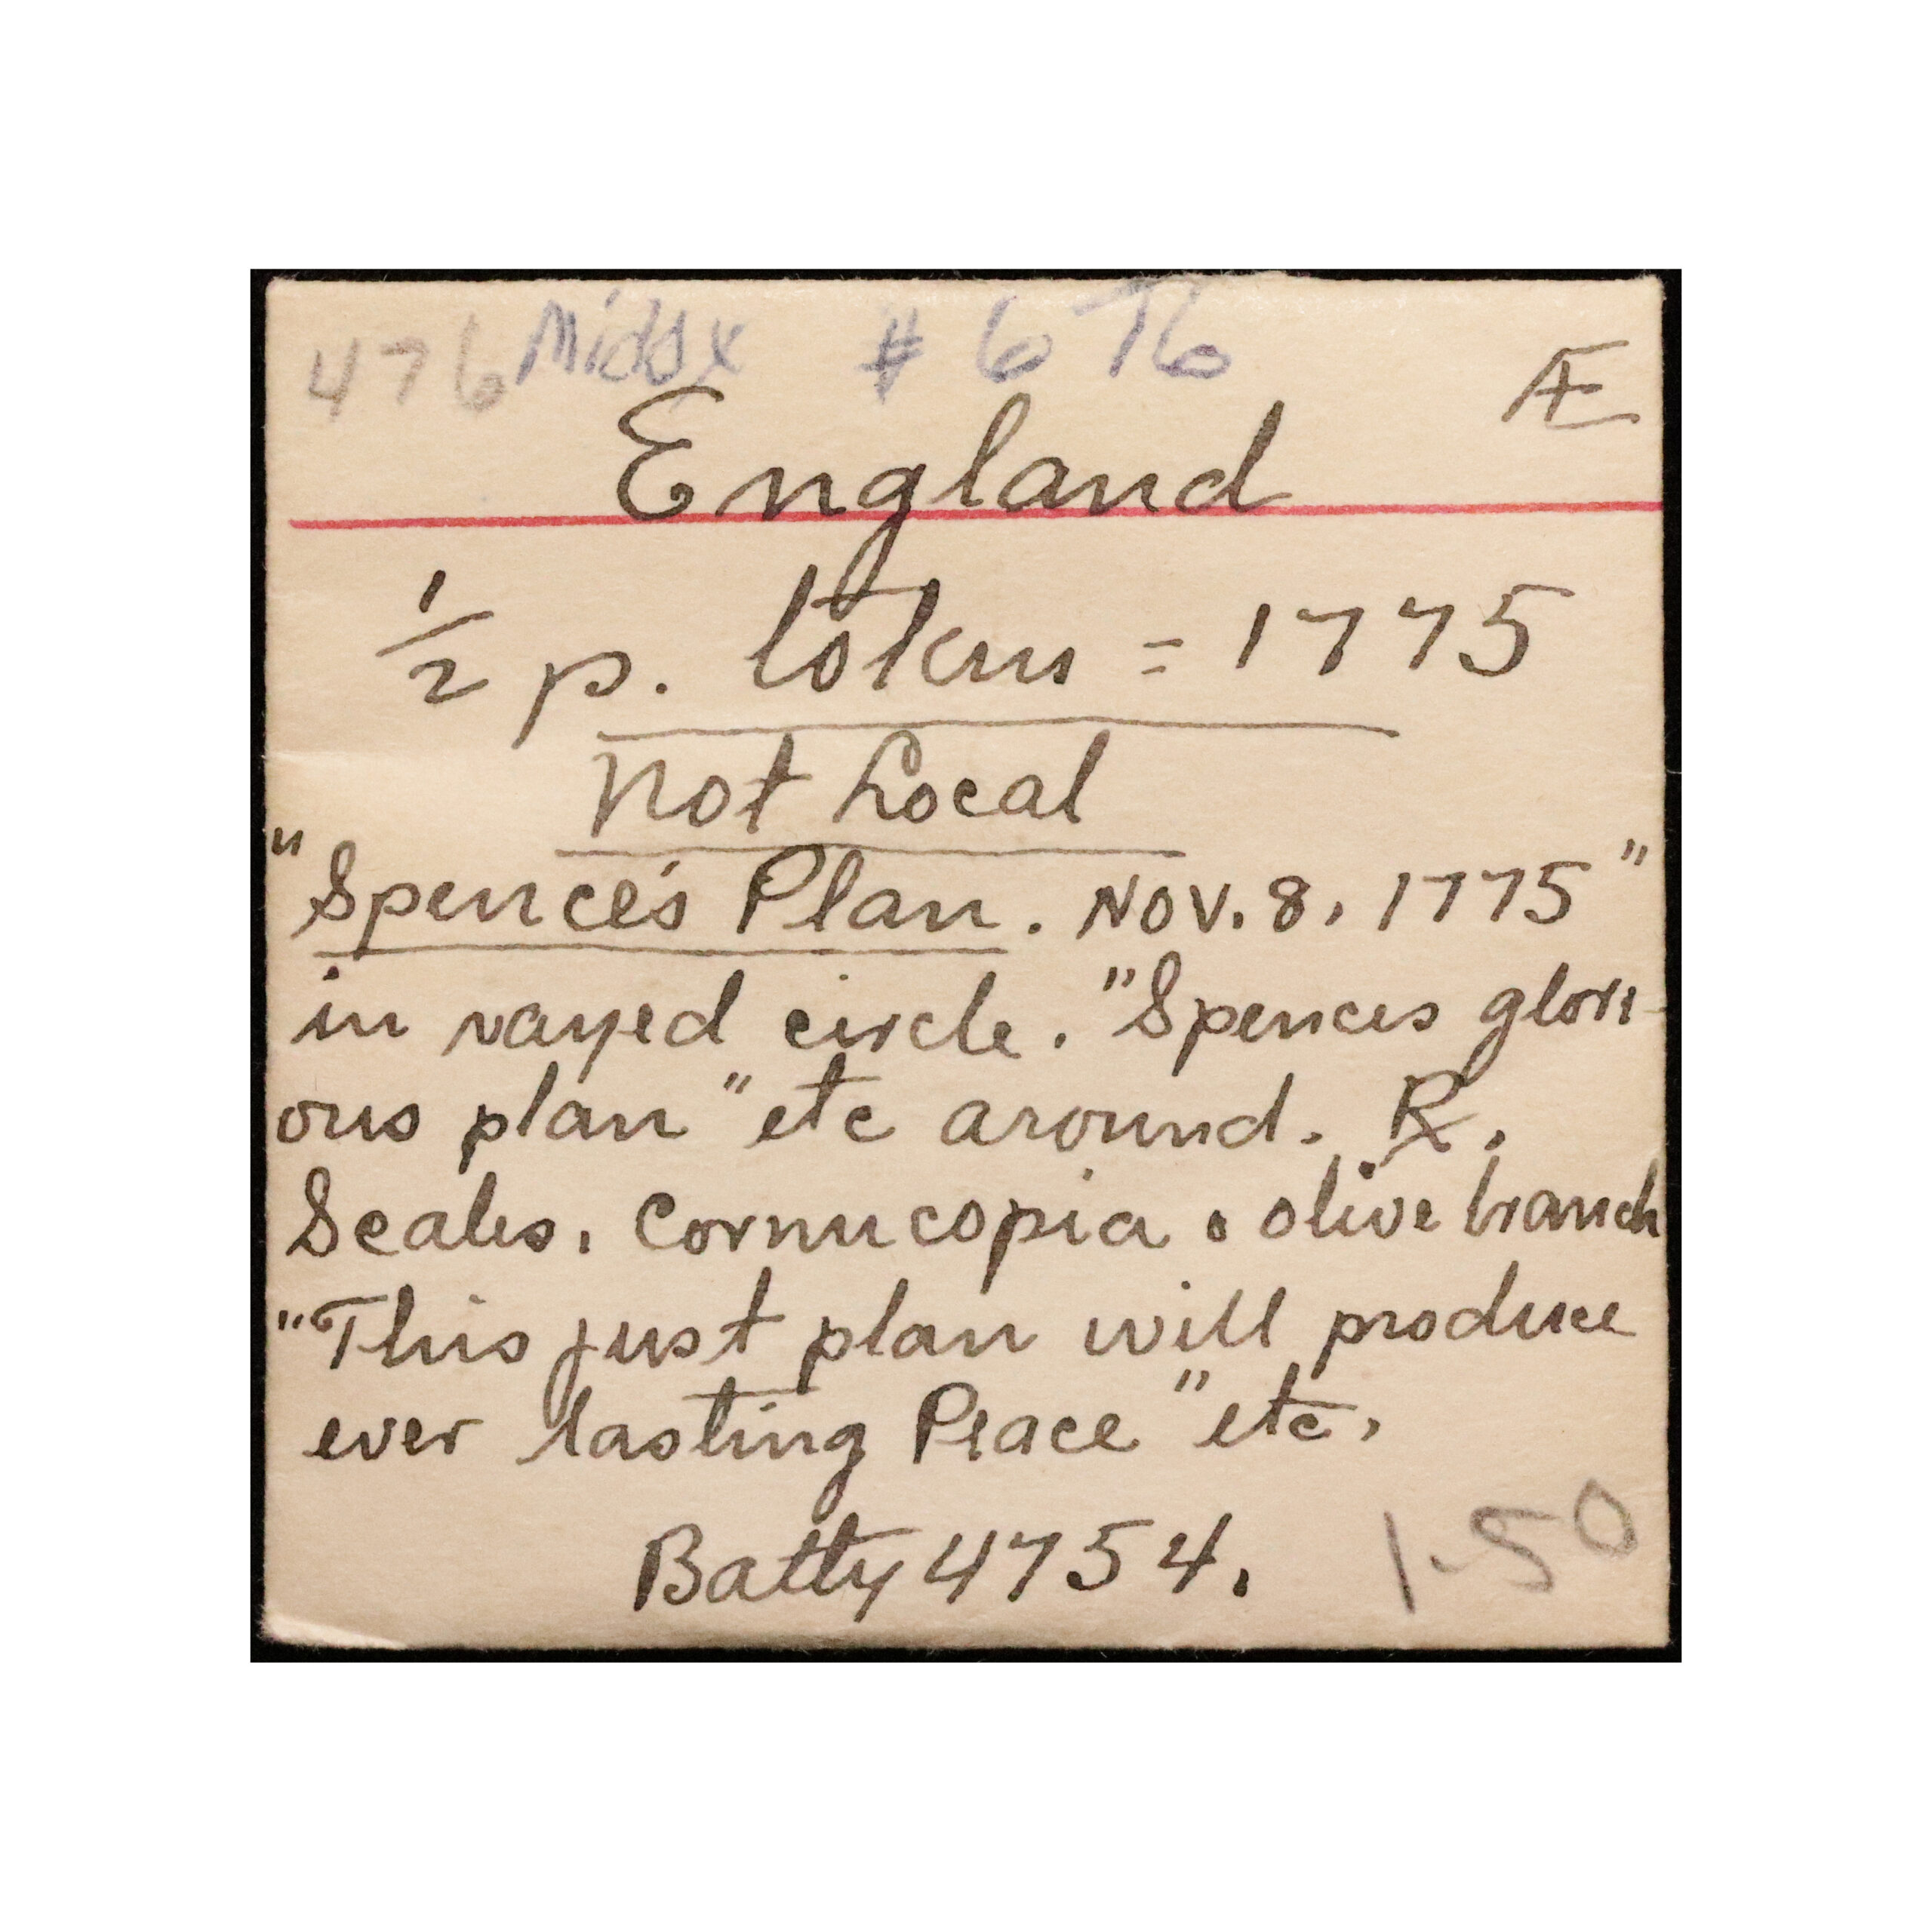 476 Midsx # 676
Æ
England
1/2 p. token = 1775
Not Local
"Spence's Plan. NOV. 8, 1775"
in rayed circle. "Spences glori-
ous plan" etc around. ℞.
Scales, Cornucopia & olive branch
"This just plan will produce
ever lasting Peace" etc.
Batty 4754.
1-50